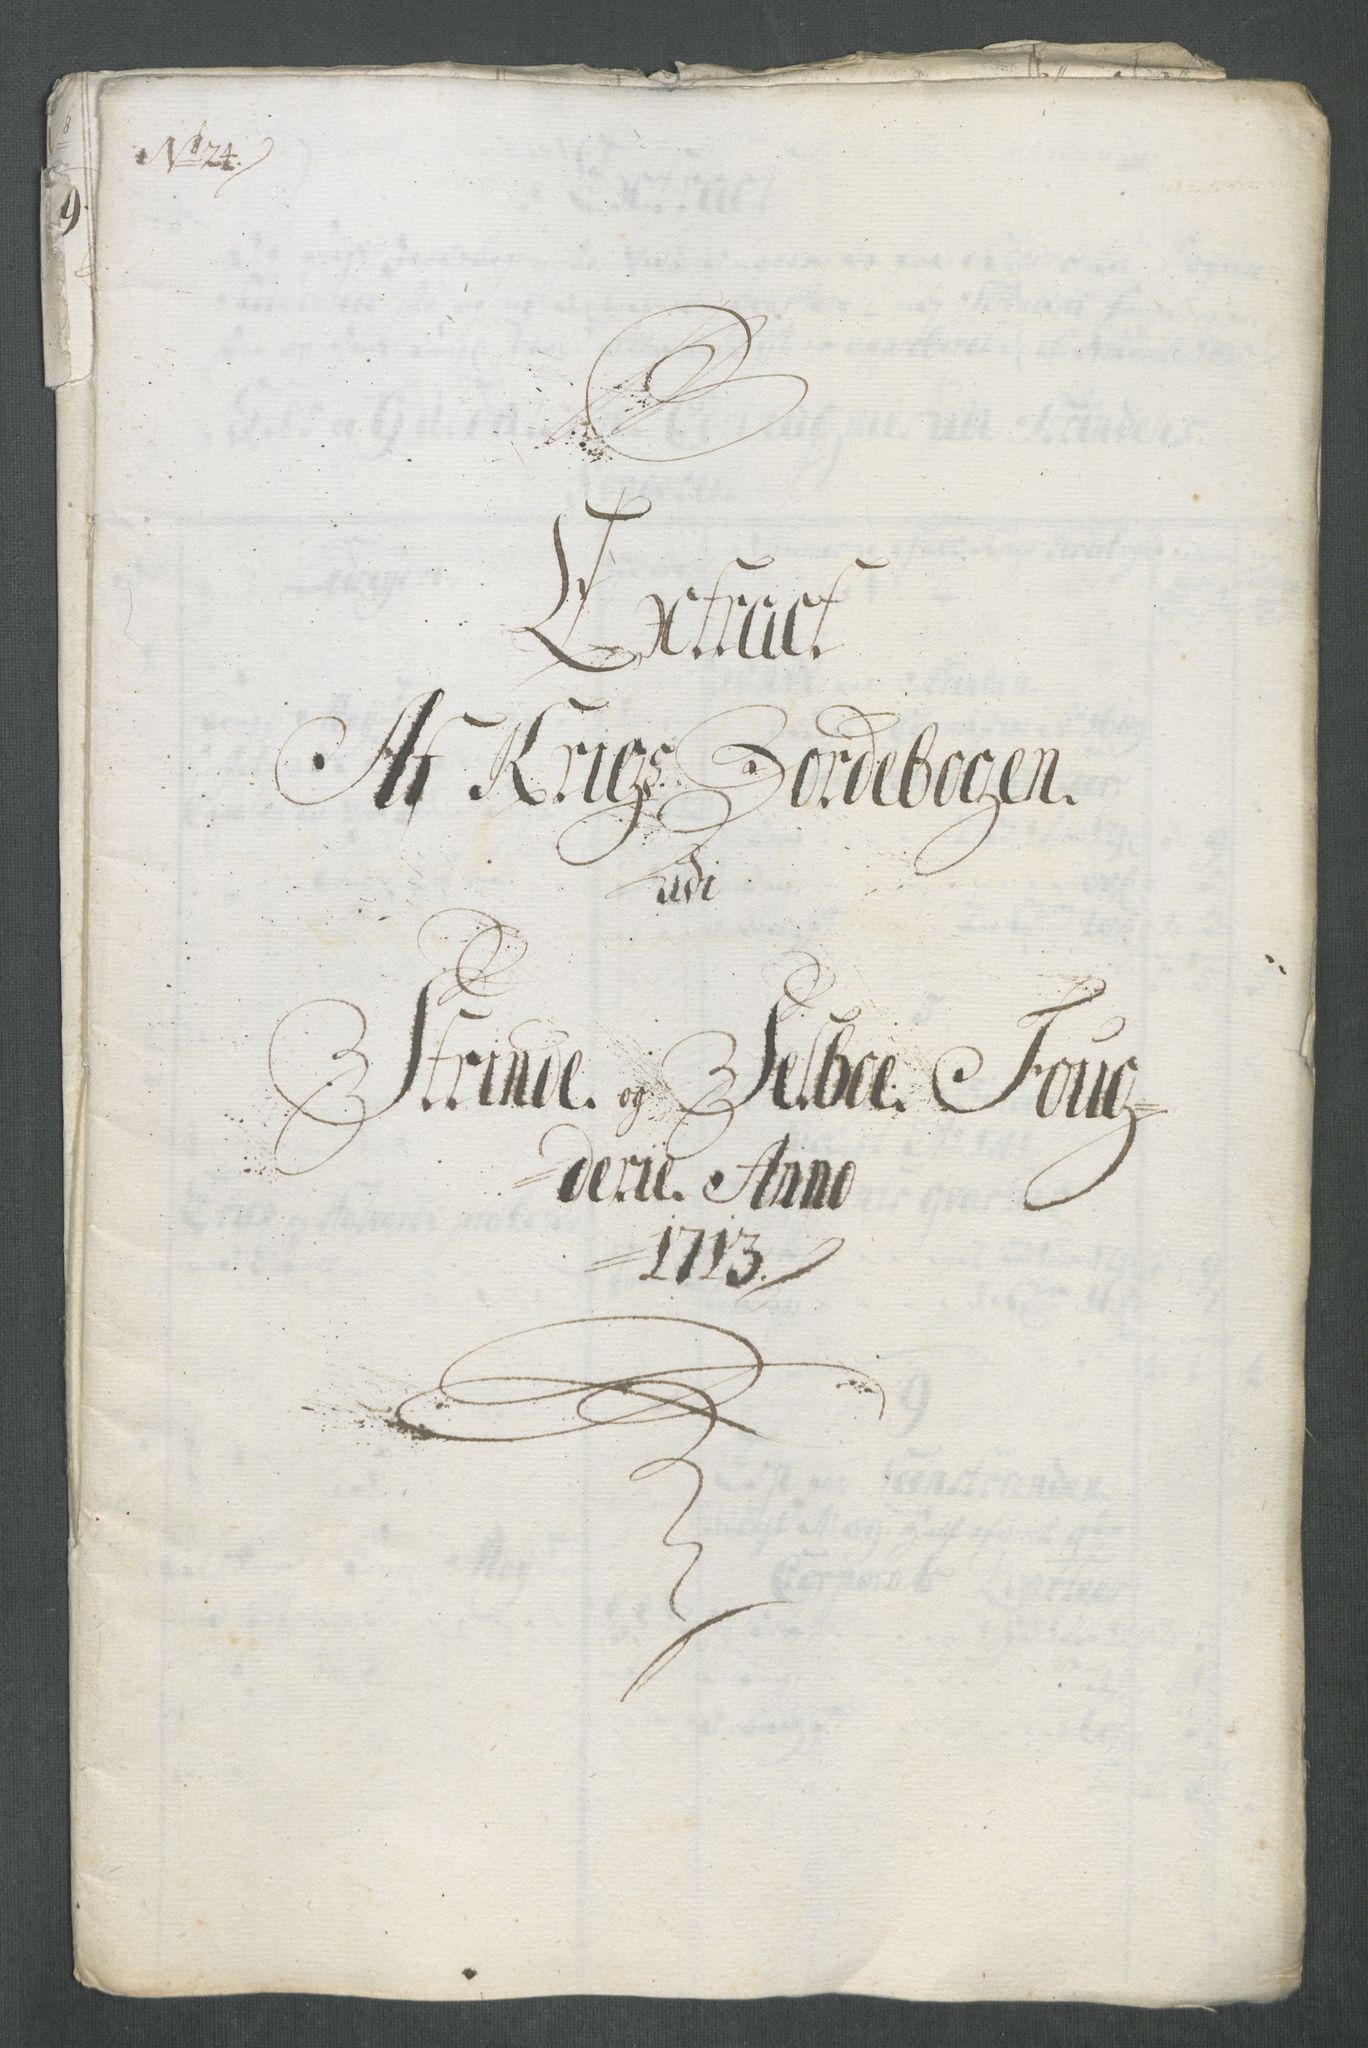 No 24.
Extract
Af Krigs Jordebogen.
udi
Strinde. og Selboe. Foug=
=derie. Anno
=1713.
8
9.